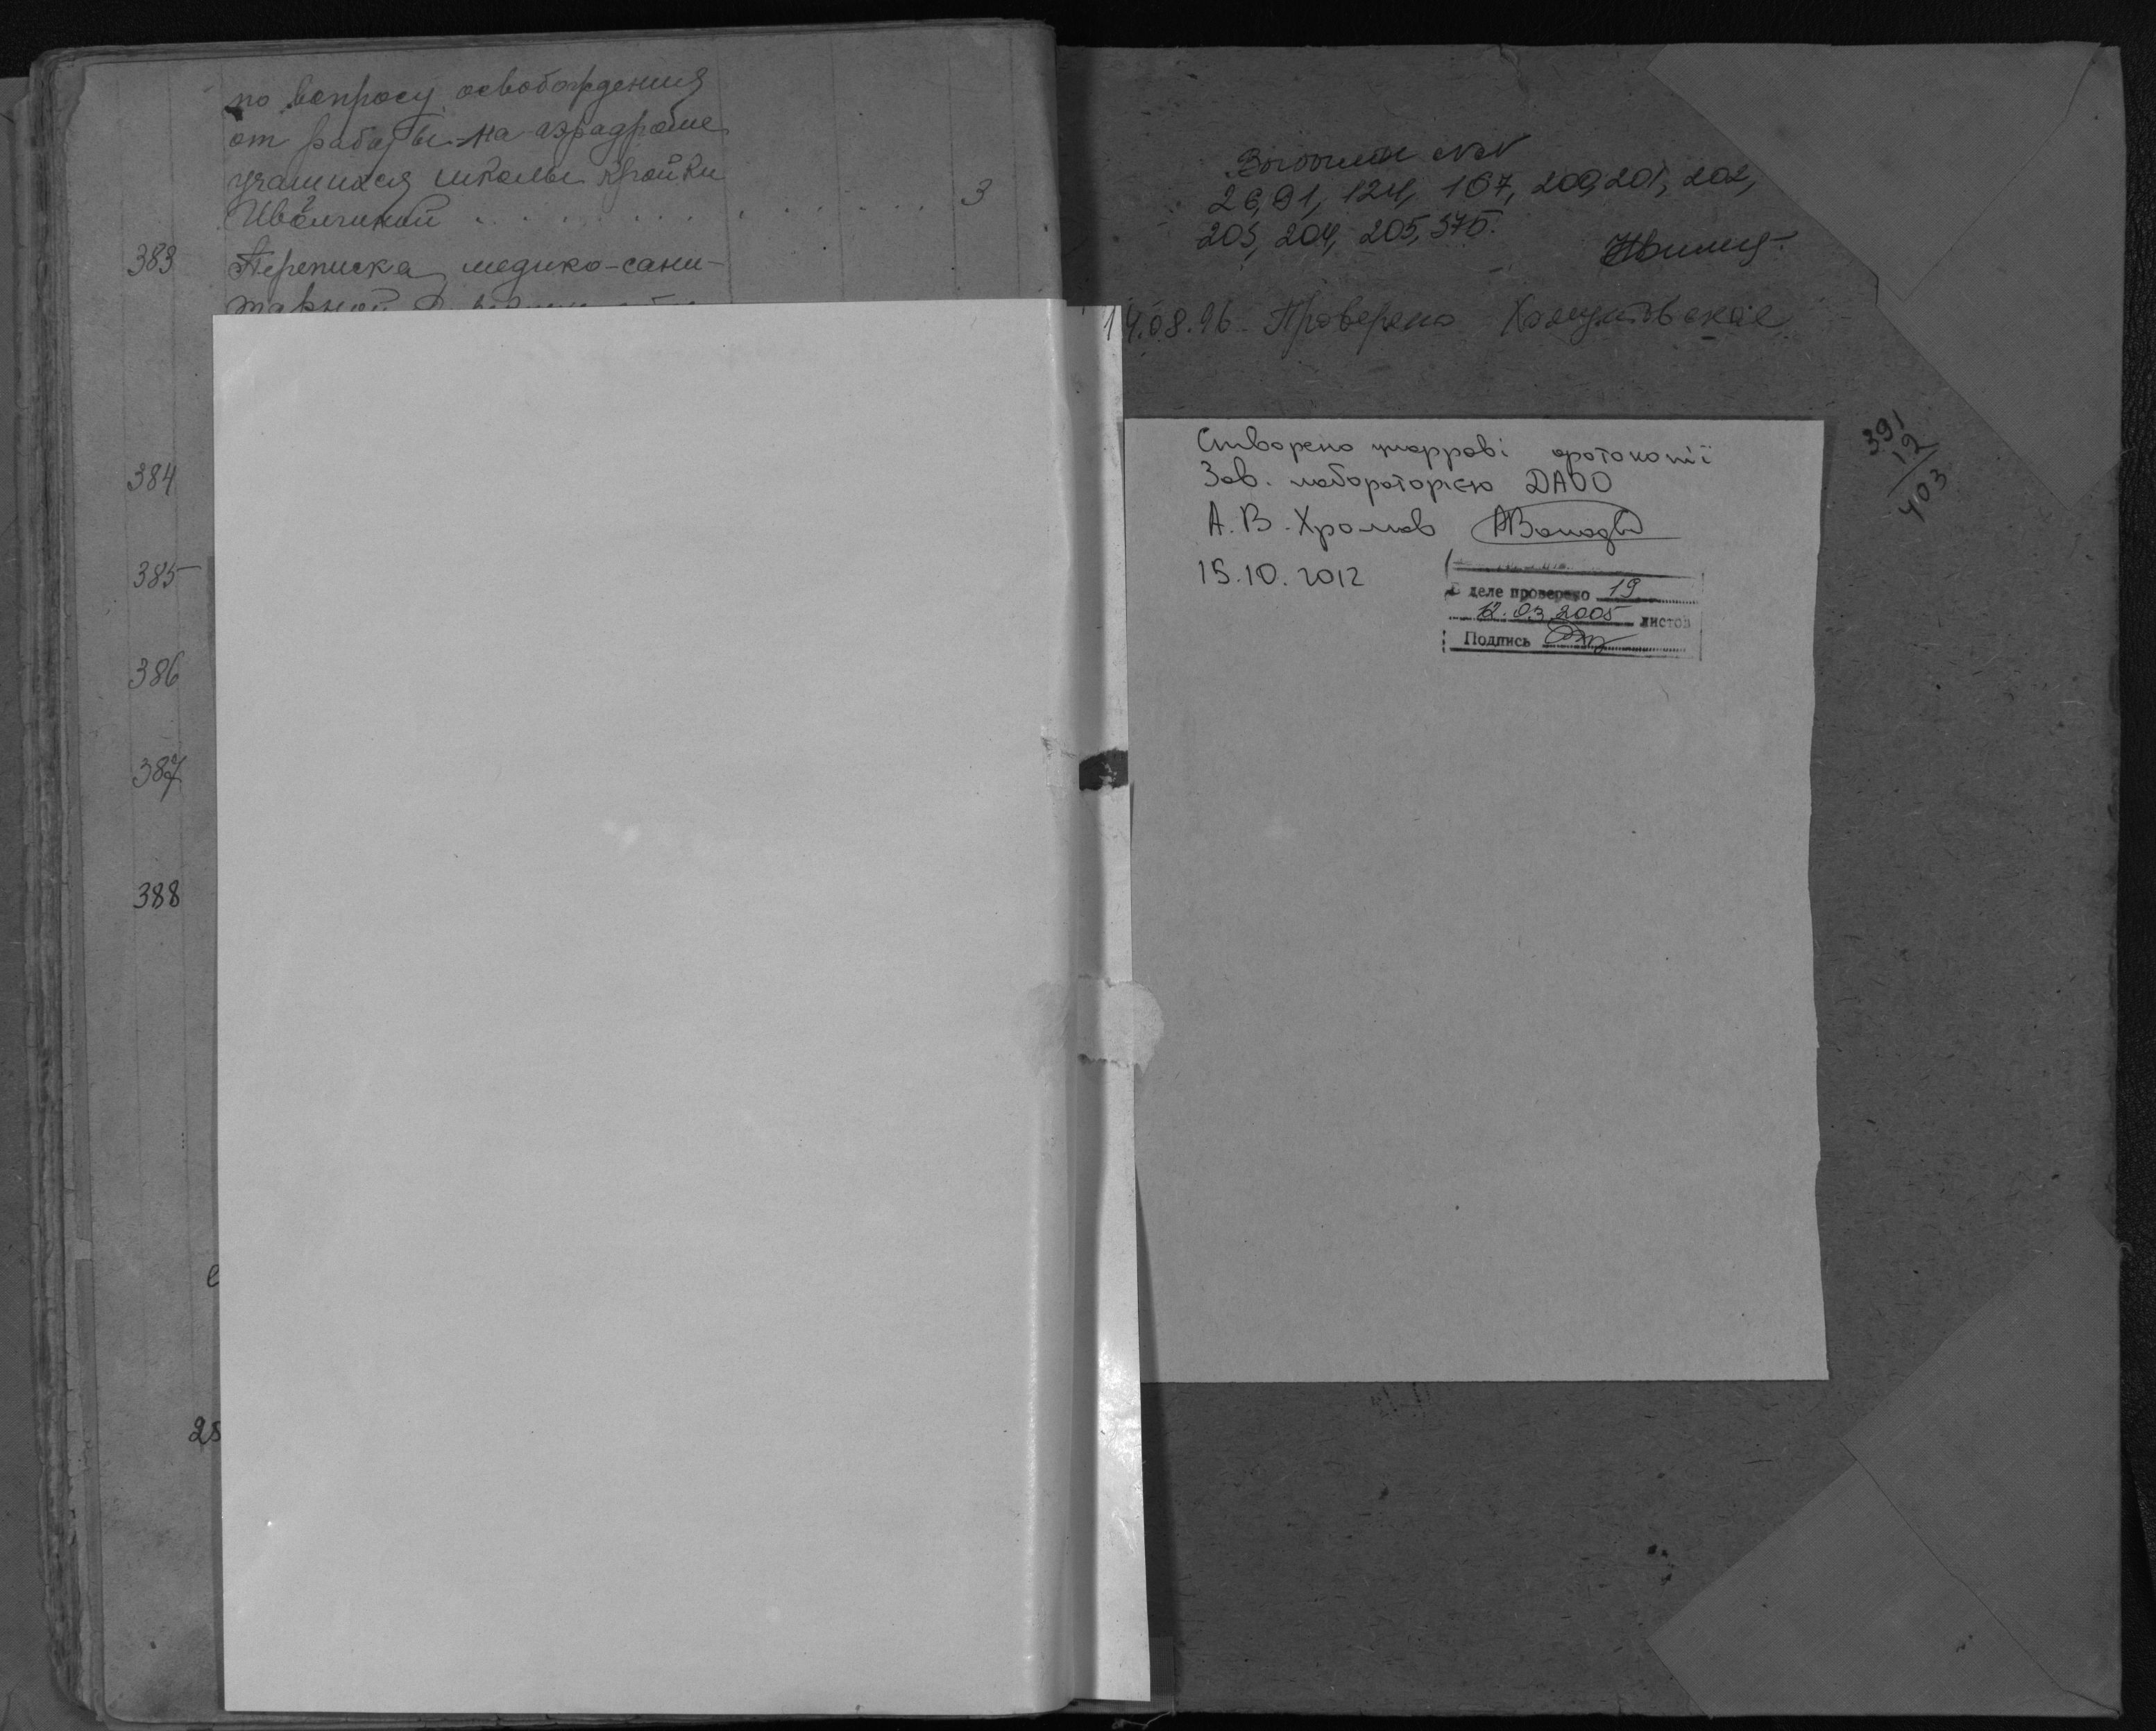 по вопросу освобождения
от работы на аэродроме
учащихся школы кройки
3
383 Переписка медико-сани-
384
385
386
387
388
Выбыли №№
26, 91, 124, 167, 200, 201, 202,
203, 204, 205, 375.
14.08.96. Проверено
391
12
403
Створено цифрові фотокопії
Зав. лабораторією ДАОО
А. В. Хромов
15.10.2012
В деле проверено 19
12.03.2005 листов
Подпись